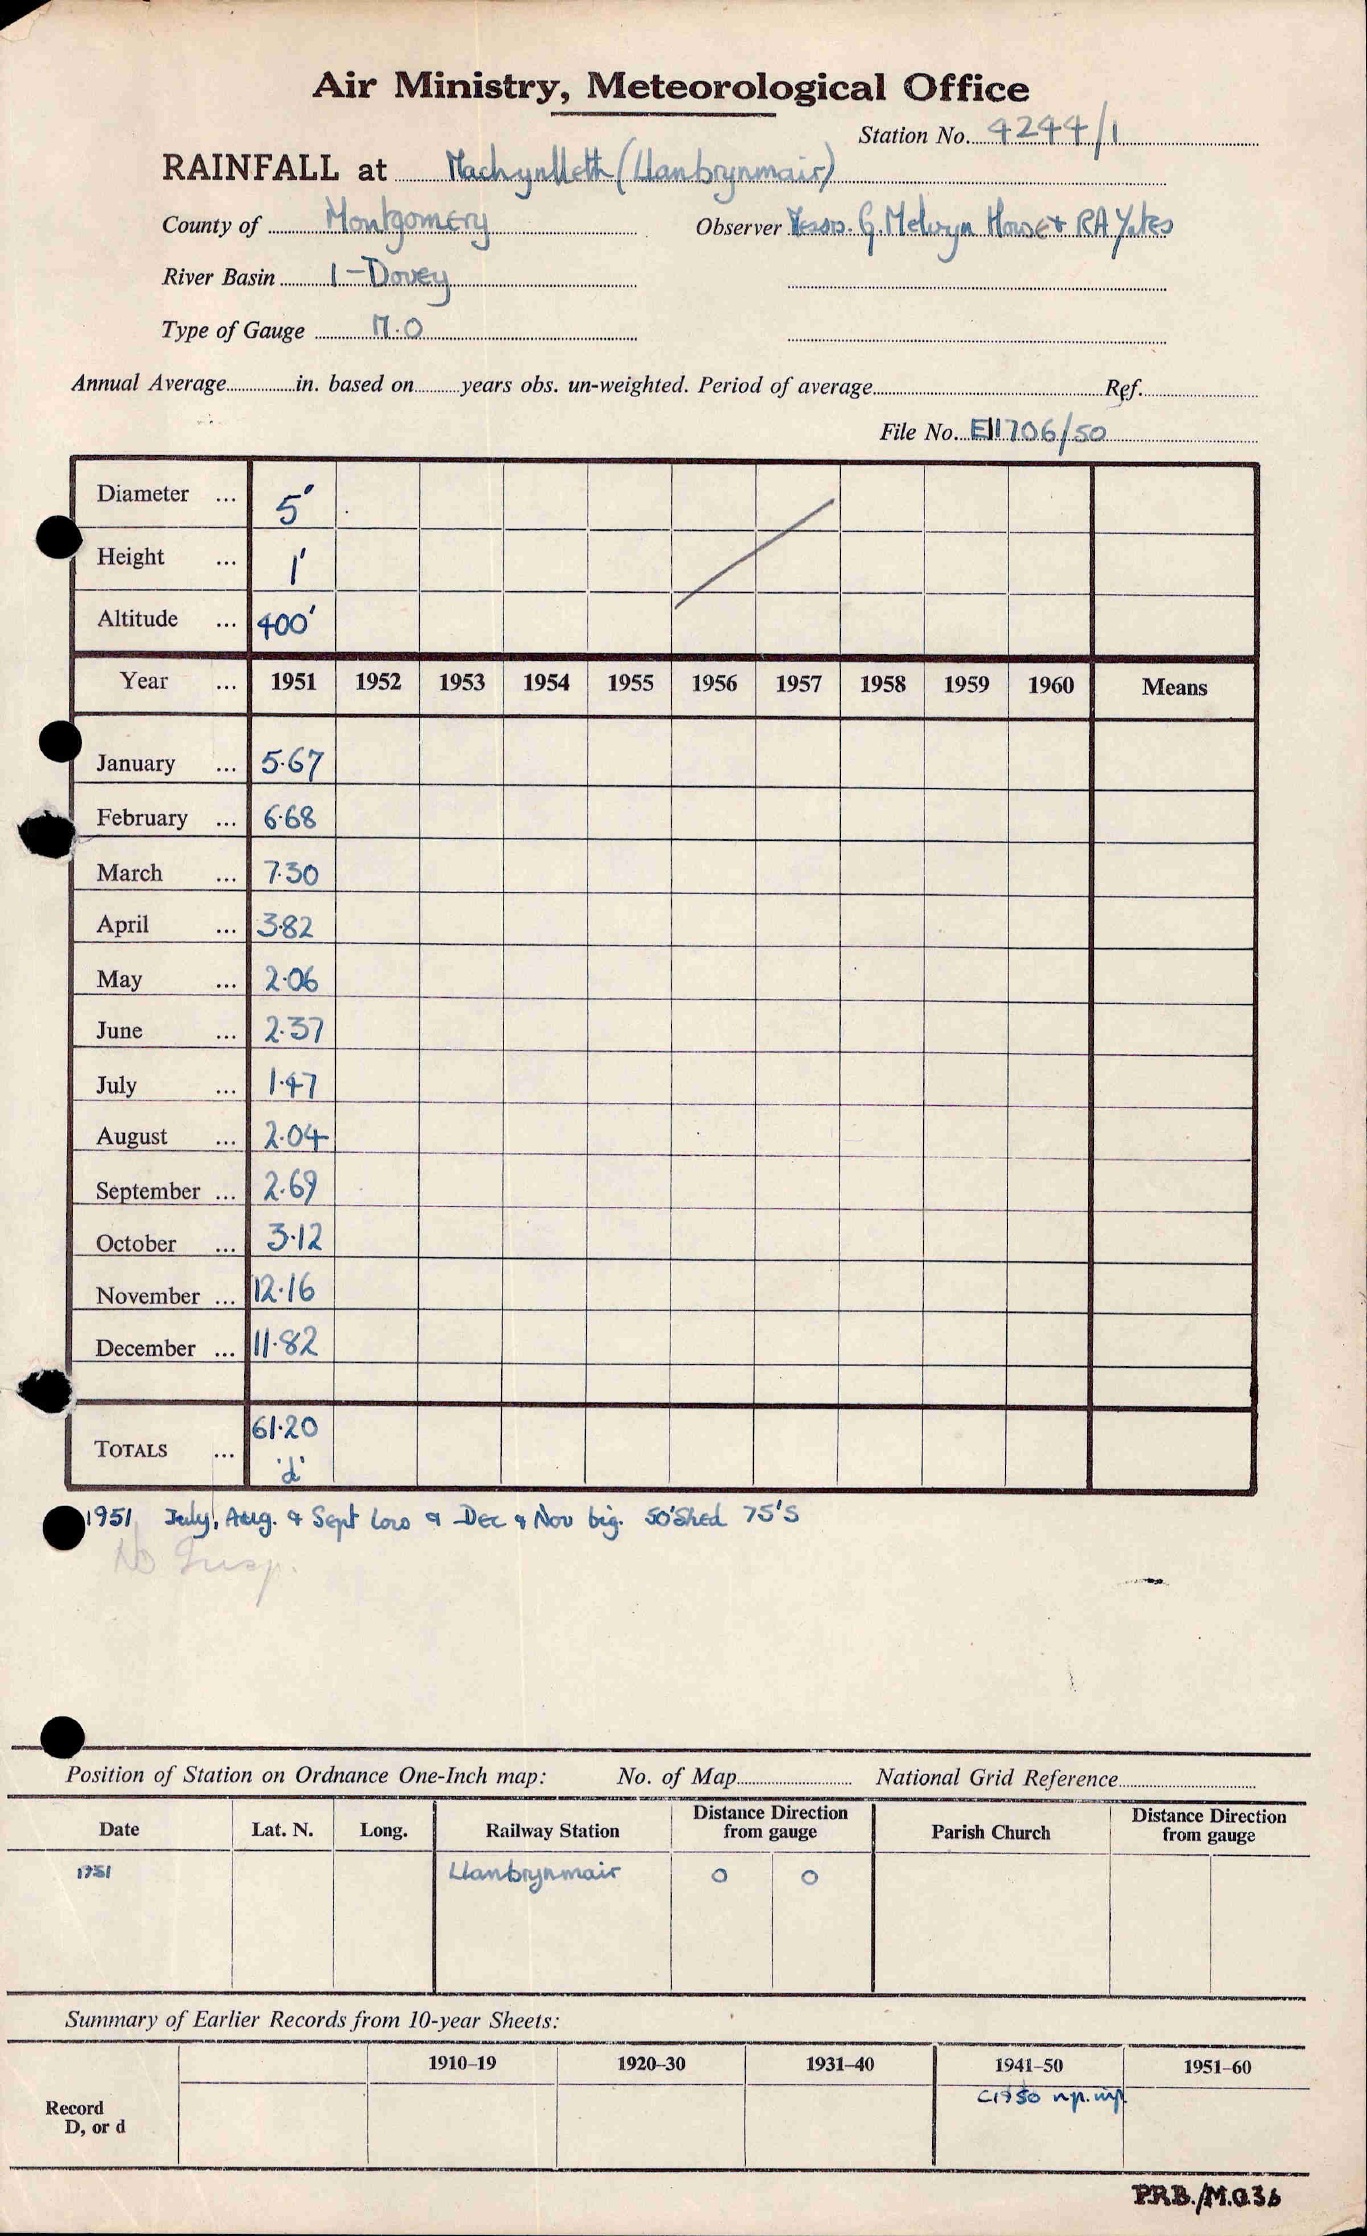 Air Ministry, Meteorological Office
Station No. 4244/1
RAINFALL at Machynlleth (Llanbrynmair)
County of Montgomery Observer Messrs. G. Melvyn Howe & RA Yates
River Basin 1 - Dovey
Type of Gauge M.O
Annual Average in. based on years obs. un-weighted. Period of average Ref.
File No. E11706/50
Diameter ... 5"
Height ... 1'
Altitude ... 400'
Year ... 1951 1952 1953 1954 1955 1956 1957 1958 1959 1960 Means
January ... 5.67
February ... 6.68
March ... 7.30
April ... 3.82
May ... 2.06
June ... 2.37
July ... 1.47
August ... 2.04
September ... 2.69
October ... 3.12
November ... 12.16
December ... 11.82
TOTALS ... 61.20
'd'
1951 July, Aug. & Sept low & Dec & Nov big. 50'Shed 75'S
No Insp.
Position of Station on Ordnance One-Inch map: No. of Map National Grid Reference
Date Lat. N. Long. Railway Station Distance Direction from gauge Parish Church Distance Direction from gauge
1951 Llanbrynmair 0 0
Summary of Earlier Records from 10-year Sheets:
1910–19 1920–30 1931–40 1941–50 1951–60
C1950 np.
Record
D, or d
P.R.B./M.O.36